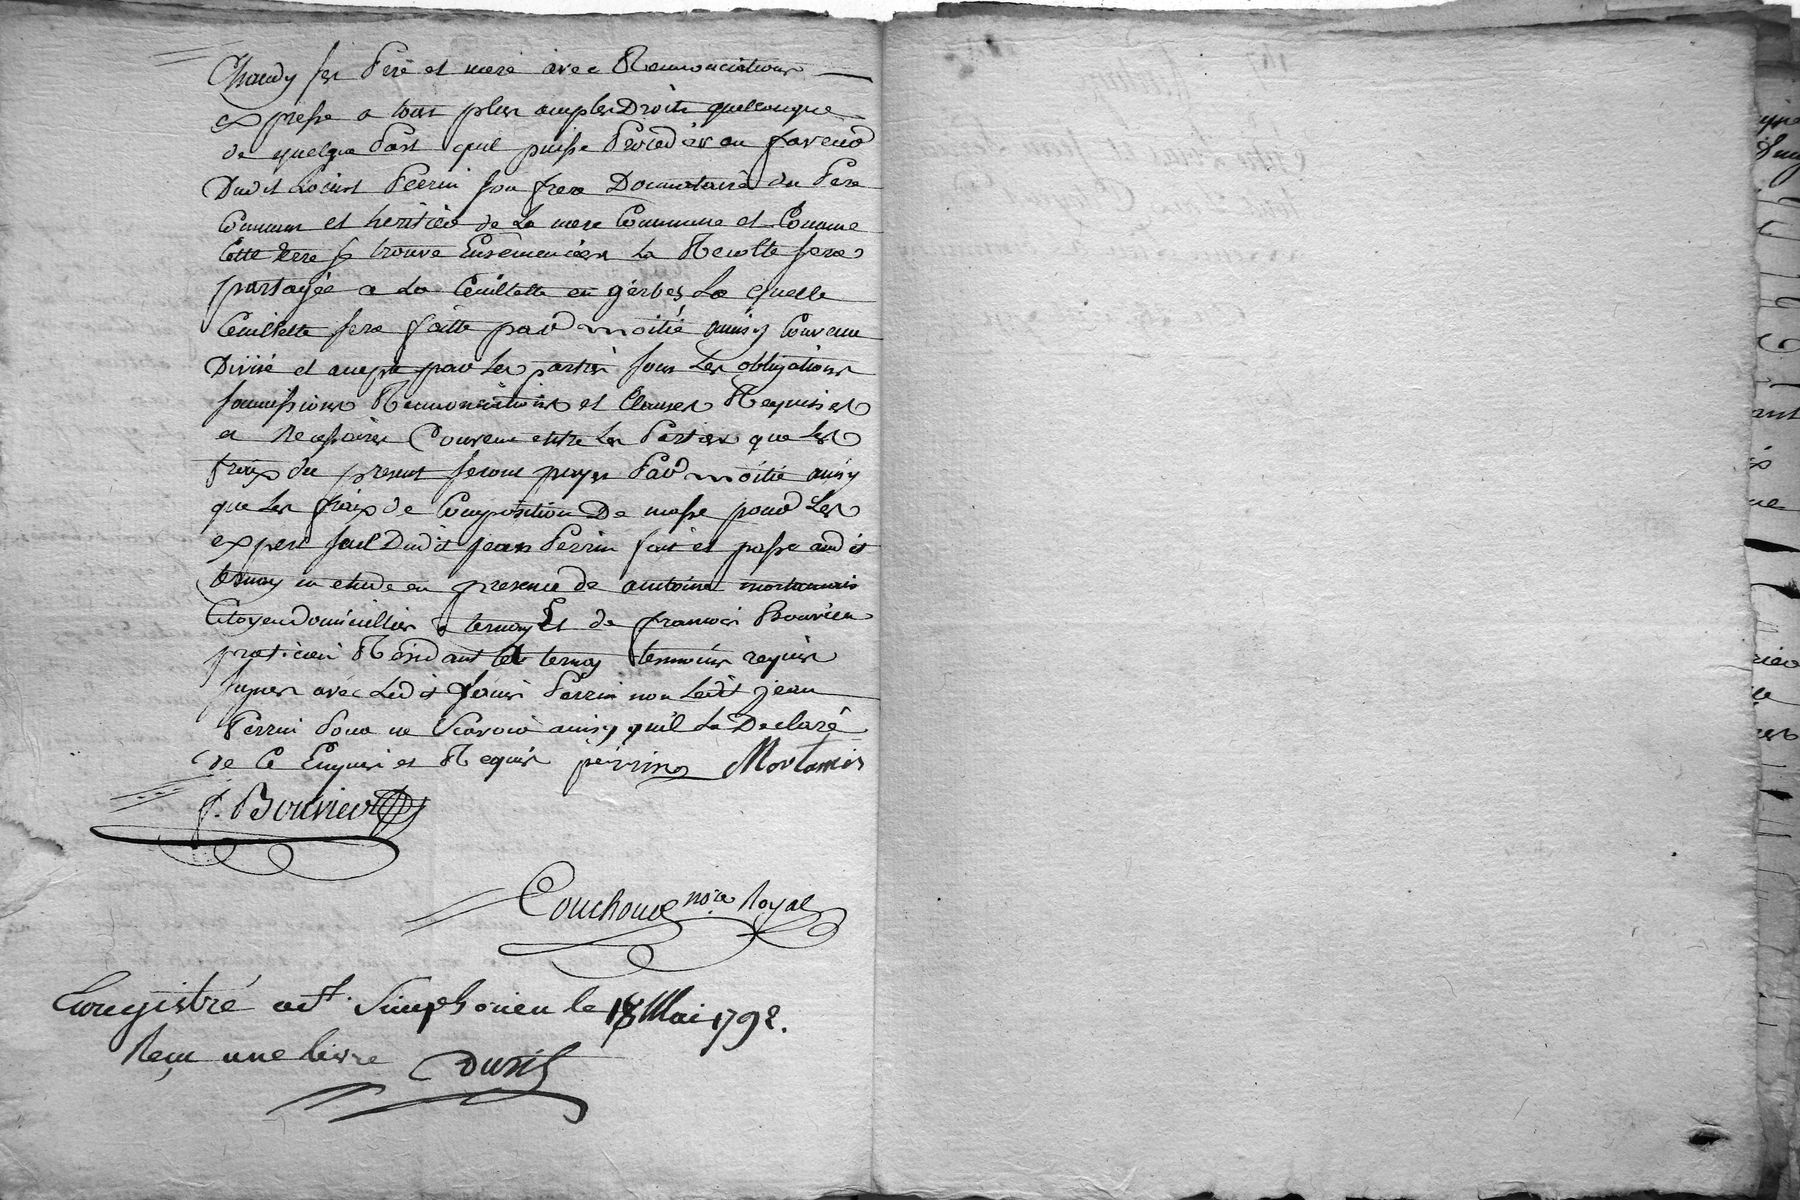 Chaudy ses Pere et mere avec Renonciation
expresse a tous plus amples Droits quelconque
de quelque Part quil puisse Proceder en faveur
Dudit Louis Perrin son frere Donnataire du Pere
Commun et heritier de la mere Commune et Comme
Cette terre se trouve Ensemencée la Recolte sera
partagée a la Ceuillette en gerbes la quelle
Ceuillette sera faitte par moitié ainsy Convenu
Divisé et accepté par les parties sous les obligations
soumissions Renonciations et Clauses Requises
et necessaires Convenu entre les Parties que les
fraix du present seront payes Par moitié ainsy
que les fraix de Composition De masse pour les
expert sauf Dudit jean Perrin fait et passé audit
ternay en etude en presence de antoine mortamais
Citoyen domicillier a ternay Et de francois Bouvier
praticien Residant audit ternay temoins requis
signes avec Ledit Louis Perrin non Ledit jean
Perrin Pour ne Scavoir ainsy quil la Declaré
de Ce Enquis et Requis perrin Mortamais
f. Bouvier
Couchoud nore Royal
Enregistré a St. Simphorien le 18 Mai 1792.
Reçu une livre